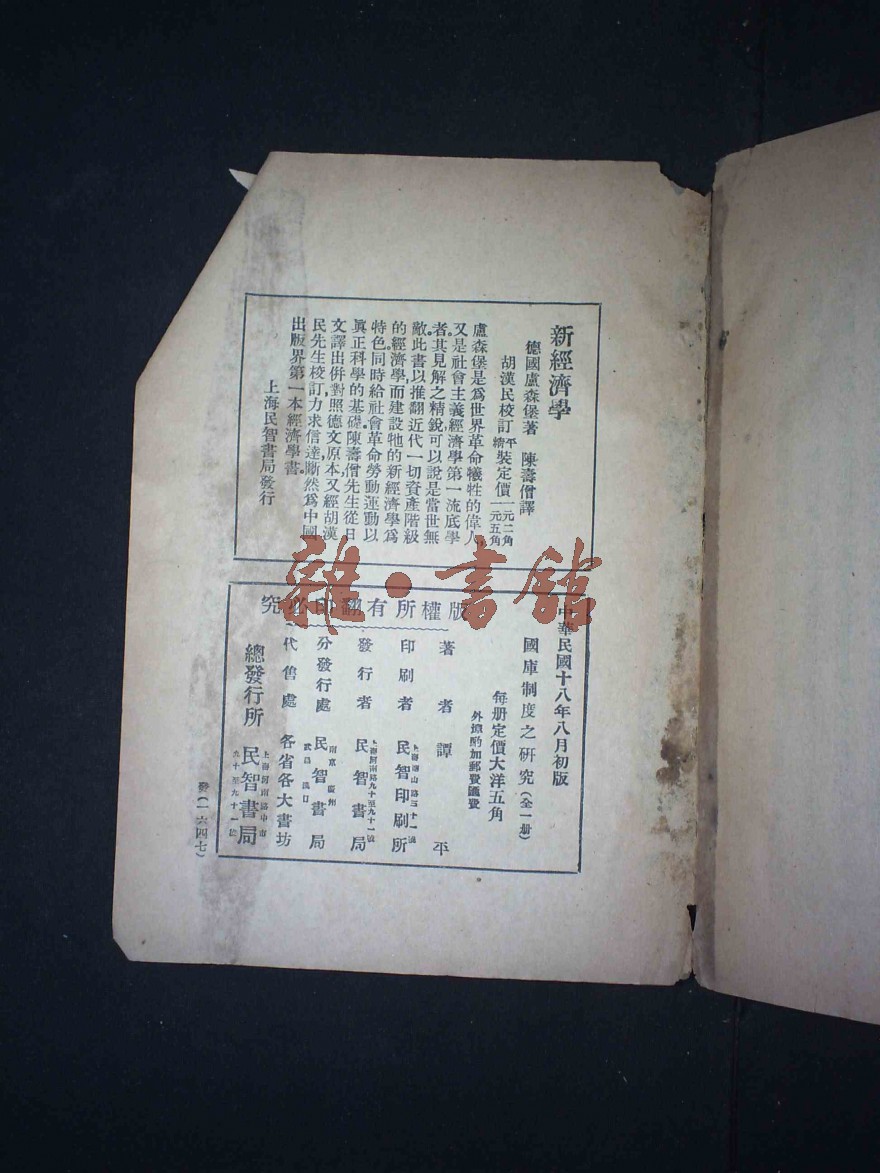 新經濟學
德國盧森堡著　陳壽僧譯
胡漢民校訂 平 精 裝定價 一元二角 一元五角
盧森堡是爲世界革命犧牲的偉人，
又是社會主義經濟學第一流底學
者。其見解之精銳，可以說是當世無
敵。此書以推翻近代一切資產階級
的經濟學，而建設牠的新經濟學爲
特色。同時給社會革命勞動運動以
眞正科學的基礎。陳壽僧先生從日
文譯出，併對照德文原本，又經胡漢
民先生校訂，力求信達，嶄然爲中國
出版界第一本經濟學書。
上海民智書局發行
中華民國十八年八月初版
國庫制度之研究（全一册）
每册定價大洋五角
外埠酌加郵費匯費
版權所有翻印必究
著者　譚平
印刷者　民智印刷所
發行者　上海河南路九十至九十一號　民智書局
分發行處　南京　廣州　武昌　漢口　民智書局
代售處　各省各大書坊
總發行所　上海河南路中市　九十至九十一號　民智書局
發（一六四七）
雜·書館